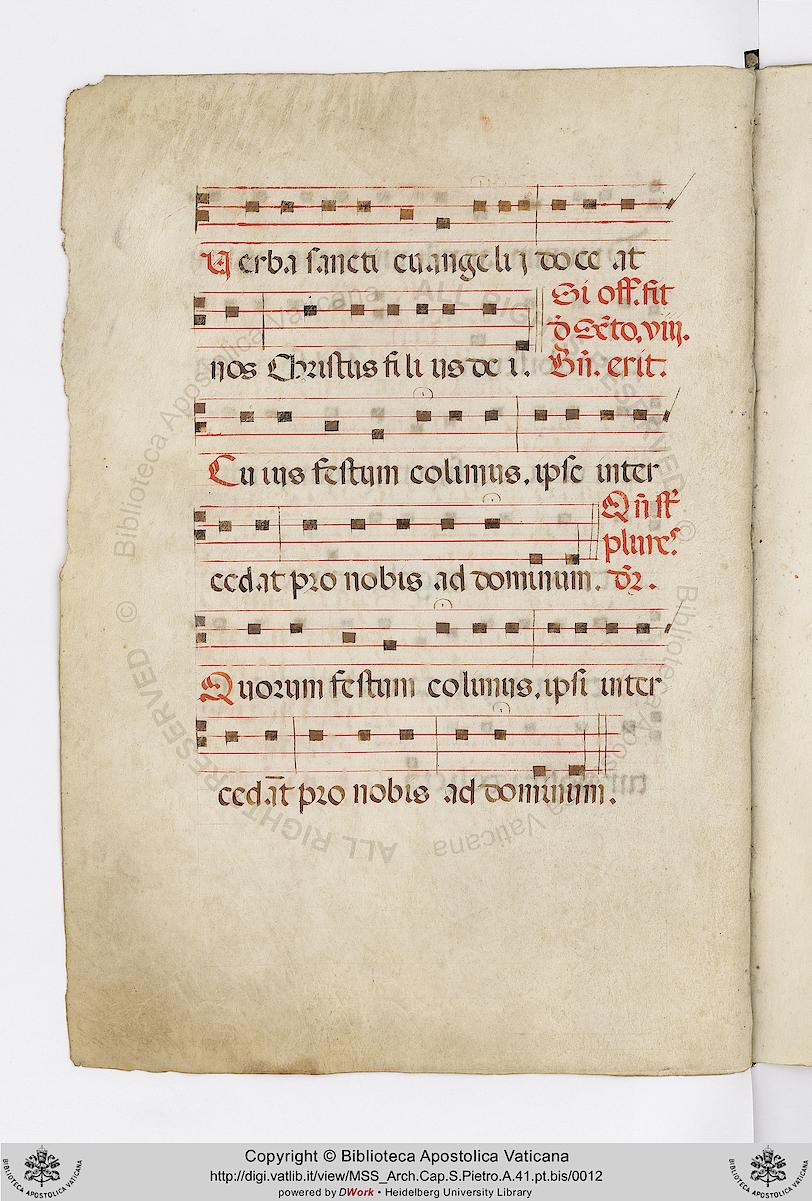 Verba sancti euangelij doce at
Si off. fit
nos Christus fili us de i.
đ Scto. viij.
Bñ. erit.
Cu ius festum colimus, ipse inter
Qñ st̃
plures
cedat pro nobis ad dominum.
dr̃.
Quorum festum colimus, ipsi inter
cedāt pro nobis ad dominum.
© Biblioteca Apostolica Vaticana
ALL RIGHTS RESERVED
Copyright © Biblioteca Apostolica Vaticana
http://digi.vatlib.it/view/MSS_Arch.Cap.S.Pietro.A.41.pt.bis/0012
powered by DWork • Heidelberg University Library
BIBLIOTECA APOSTOLICA VATICANA
BIBLIOTECA APOSTOLICA VATICANA